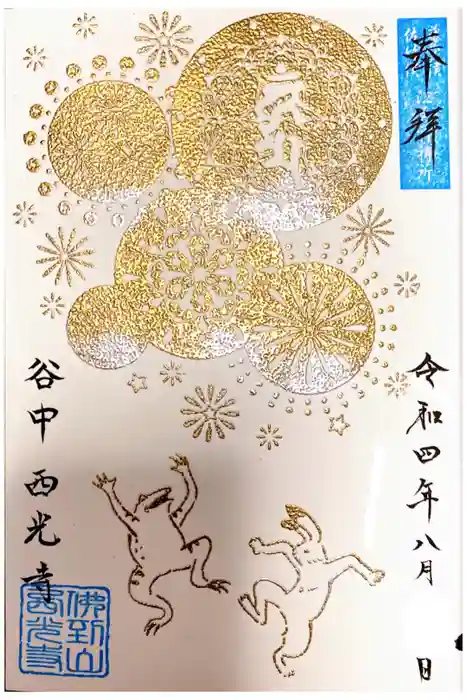 奉拝
令和四年八月 日
谷中 西光寺
佛到山
西光寺